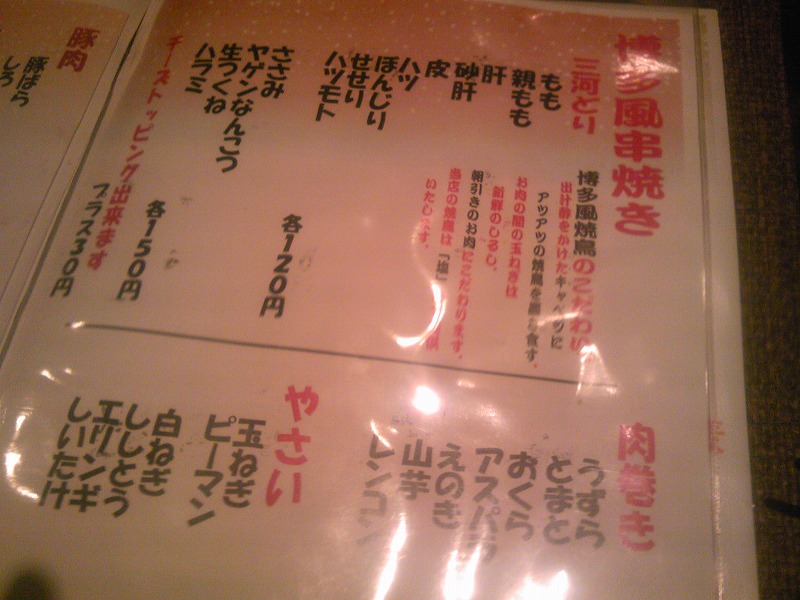 博多風串焼き
三河とり
もも
親もも
肝
砂肝
皮
ハツ
ぼんじり
せせり
ハツモト
各120円
ささみ
ヤゲンなんこつ
生つくね
ハラミ
各150円
チーズトッピング出来ます
プラス30円
博多風焼鳥のこだわり
出汁酢をかけたキャベツに
アツアツの焼鳥を
食す。
お肉の間の玉ねぎは
新鮮のしるし。
朝引きのお肉にこだわります。
当店の焼鳥は「塩」
いたします。
肉巻き
うずら
とまと
おくら
アスパラ
えのき
山芋
レンコン
やさい
玉ねぎ
ピーマン
白ねぎ
ししとう
エリンギ
しいたけ
豚肉
豚ばら
しろ